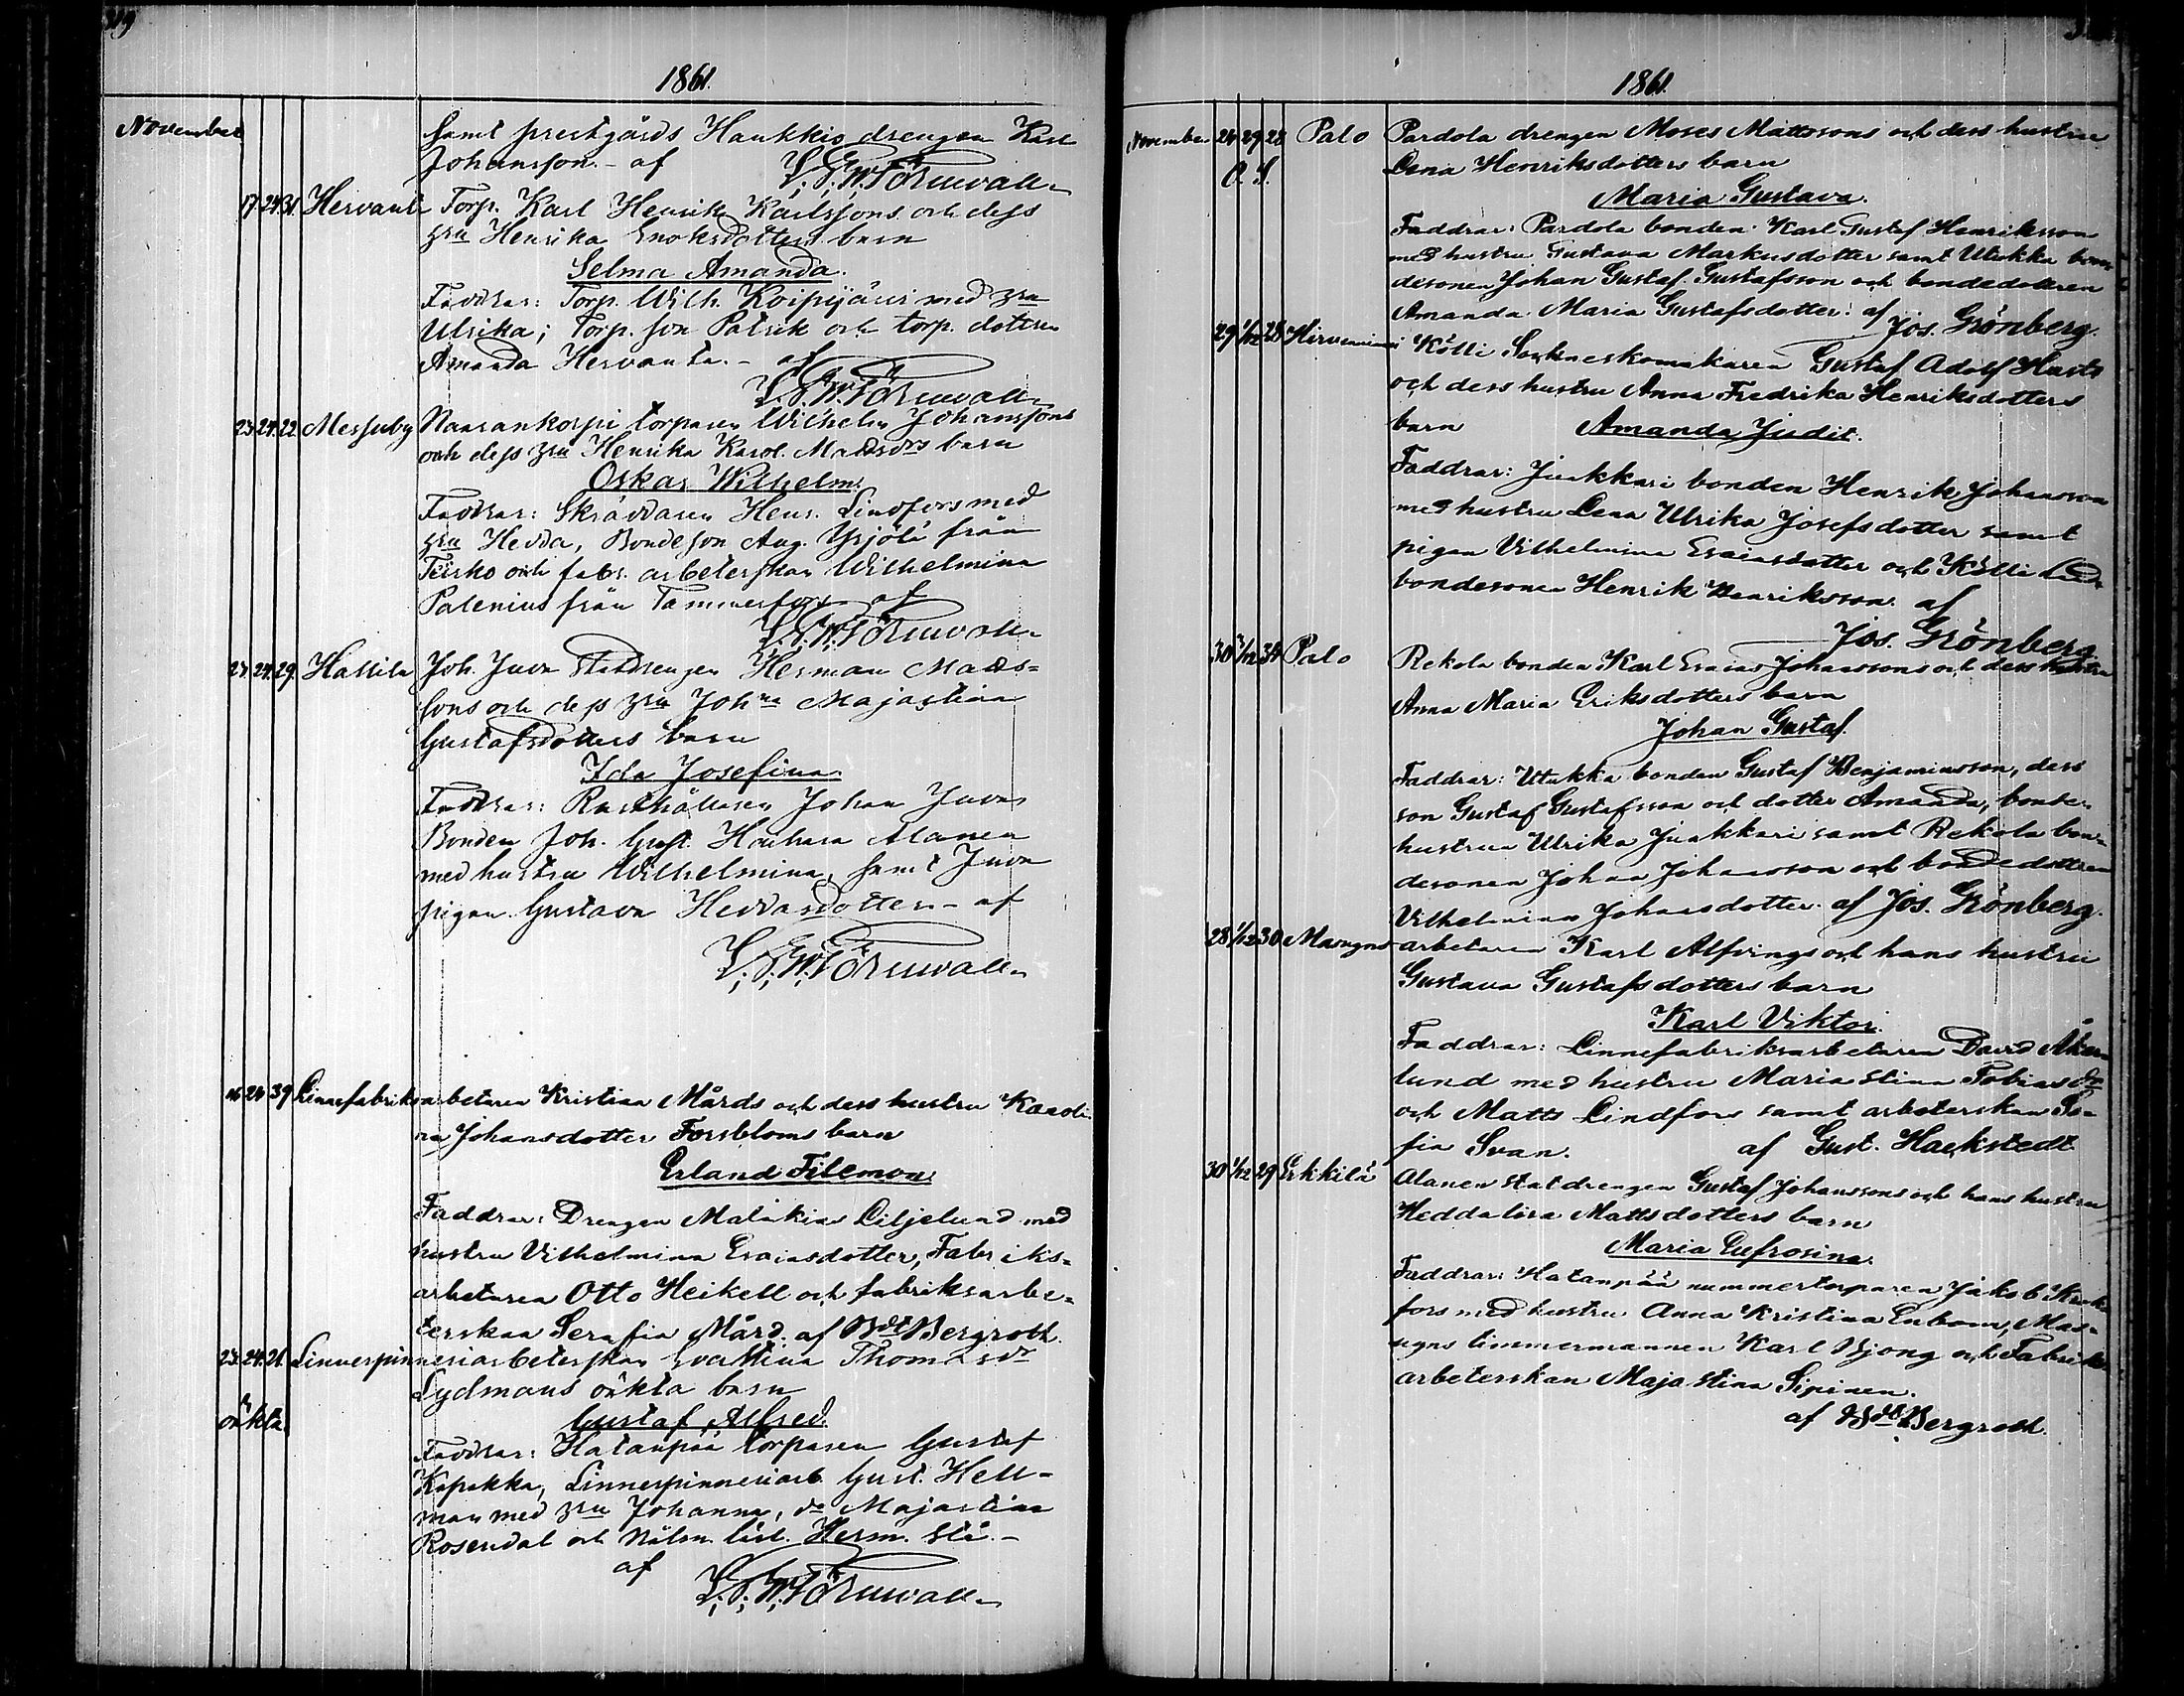 319
1861.
November
samt prestgårds Haukkio drengen Karl
Johansson. - af L. G. W. Törnwall.
17. 24. 31. Hervanta Torp. Karl Henrik Karlssons och dess
hru Henrika Enoksdotters barn
Selma Amanda.
Faddrar: Torp. Wilh. Koipijärvi med hru
Ulrika; Torp. son Patrik och torp. dottren
Amanda Hervanta. - af
L. G. W. Törnwall.
23. 24. 22. Messuby Naarankorpi torparen Wilhelm Johanssons
och dess hru Henrika Karol. Madsdrs barn
Oskar Wilhelm.
Faddrar: Skräddaren Henr. Lindfors med
hru Hedda, Bondeson Aug. Yrjölä från
Teisko och fabr. arbeterskan Wilhelmina
Palenius från Tammerfors af
L. G. W. Törnwall.
23. 24. 29. Hallila Joh. Juva Statdrengen Herman Mads-
sons och dess hru Johna Majastina
Gustafsdotters barn
Ida Josefina.
Faddrar: Rusthållaren Johan Juva
Bonden Joh. Gust. Hauhara Alanen
med hustru Wilhelmina, samt Juva
pigan Gustava Heddasdotter. - af
L. G. W. Törnwall.
16 24 39 Linnefabriksarbetaren Kristian Mårds och dess hustru Karoli-
na Johansdotter Forsbloms barn
Erland Filemon.
Faddrar: Drengen Malakias Liljelund med
hustru Vilhelmina Esaiasdotter, Fabriks-
arbetaren Otto Heikell och fabriksarbe-
terskan Serafia Mård. af Bdt Bergroth.
23. 24. 21. Linnespinneriarbeterskan Evastina Thomasdr
Lydmans oäkta barn
oäkta. Gustaf Alfred.
Faddrar: Hatanpää torparen Gustaf
Kapakka, Linnespinneriarb. Gust. Hell-
man med hru Johanna, do Majastina
Rosendal och Herm. Stå. -
af L. G. W. Törnwall.
1861.
November 24 29 28 Palo Pardola drengen Moses Mattssons och dess hustru
O. S. Lena Henriksdotters barn
Maria Gustava.
Faddrar: Pardola bonden Karl Gustaf Henriksson
med hustru Gustava Markusdotter samt Utukka bon-
desonen Johan Gustaf Gustafsson och bondedottren
Amanda Maria Gustafsdotter: af Jos. Grönberg.
29 1/12 28 Hirviniemi Kölli Socknesskomakaren Gustaf Adolf Hurts
och dess hustru Anna Fredrika Henriksdotters
barn Amanda Judit.
Faddrar: Juakkari bonden Henrik Johansson
med hustru Lena Ulrika Josefsdotter samt
pigan Vilhelmina Esaiasdotter och Kölli
bondesonen Henrik Henriksson. af
Jos. Grönberg.
30 3/12 34 Palo Rekola bonden Karl Esaias Johanssons och dess hustru
Anna Maria Eriksdotters barn
Johan Gustaf.
Faddrar: Utukka bonden Gustaf Benjaminsson, dess
son Gustaf Gustafsson och dotter Amanda, bonde-
hustrun Ulrika Juakkari samt Rekola bon-
desonen Johan Johansson och bondedottren
Vilhelmina Johansdotter. af Jos. Grönberg.
28 1/12 30 Masugns arbetaren Karl Alfvings och hans hustru
Gustava Gustafsdotters barn
Karl Viktor.
Faddrar: Linnefabriksarbetaren David Åker-
lund med hustru Maria Stina Tobiasdr
och Matts Lindfors samt arbeterskan So-
fia Svan. af Gust. Hackstedt
30 1/12 29 Erkkilä Alanen statdrengen Gustaf Johanssons och hans hustru
Hedda Lisa Mattsdotters barn
Maria Eufrosina.
Faddrar: Hatanpää nummertorparen Jakob
fors med hustru Anna Kristina Enbom, Mas-
ugns timmermannen Karl Bjong och Fabriks-
arbeterskan Maja Stina Sipinen.
af Bdt Bergroth.